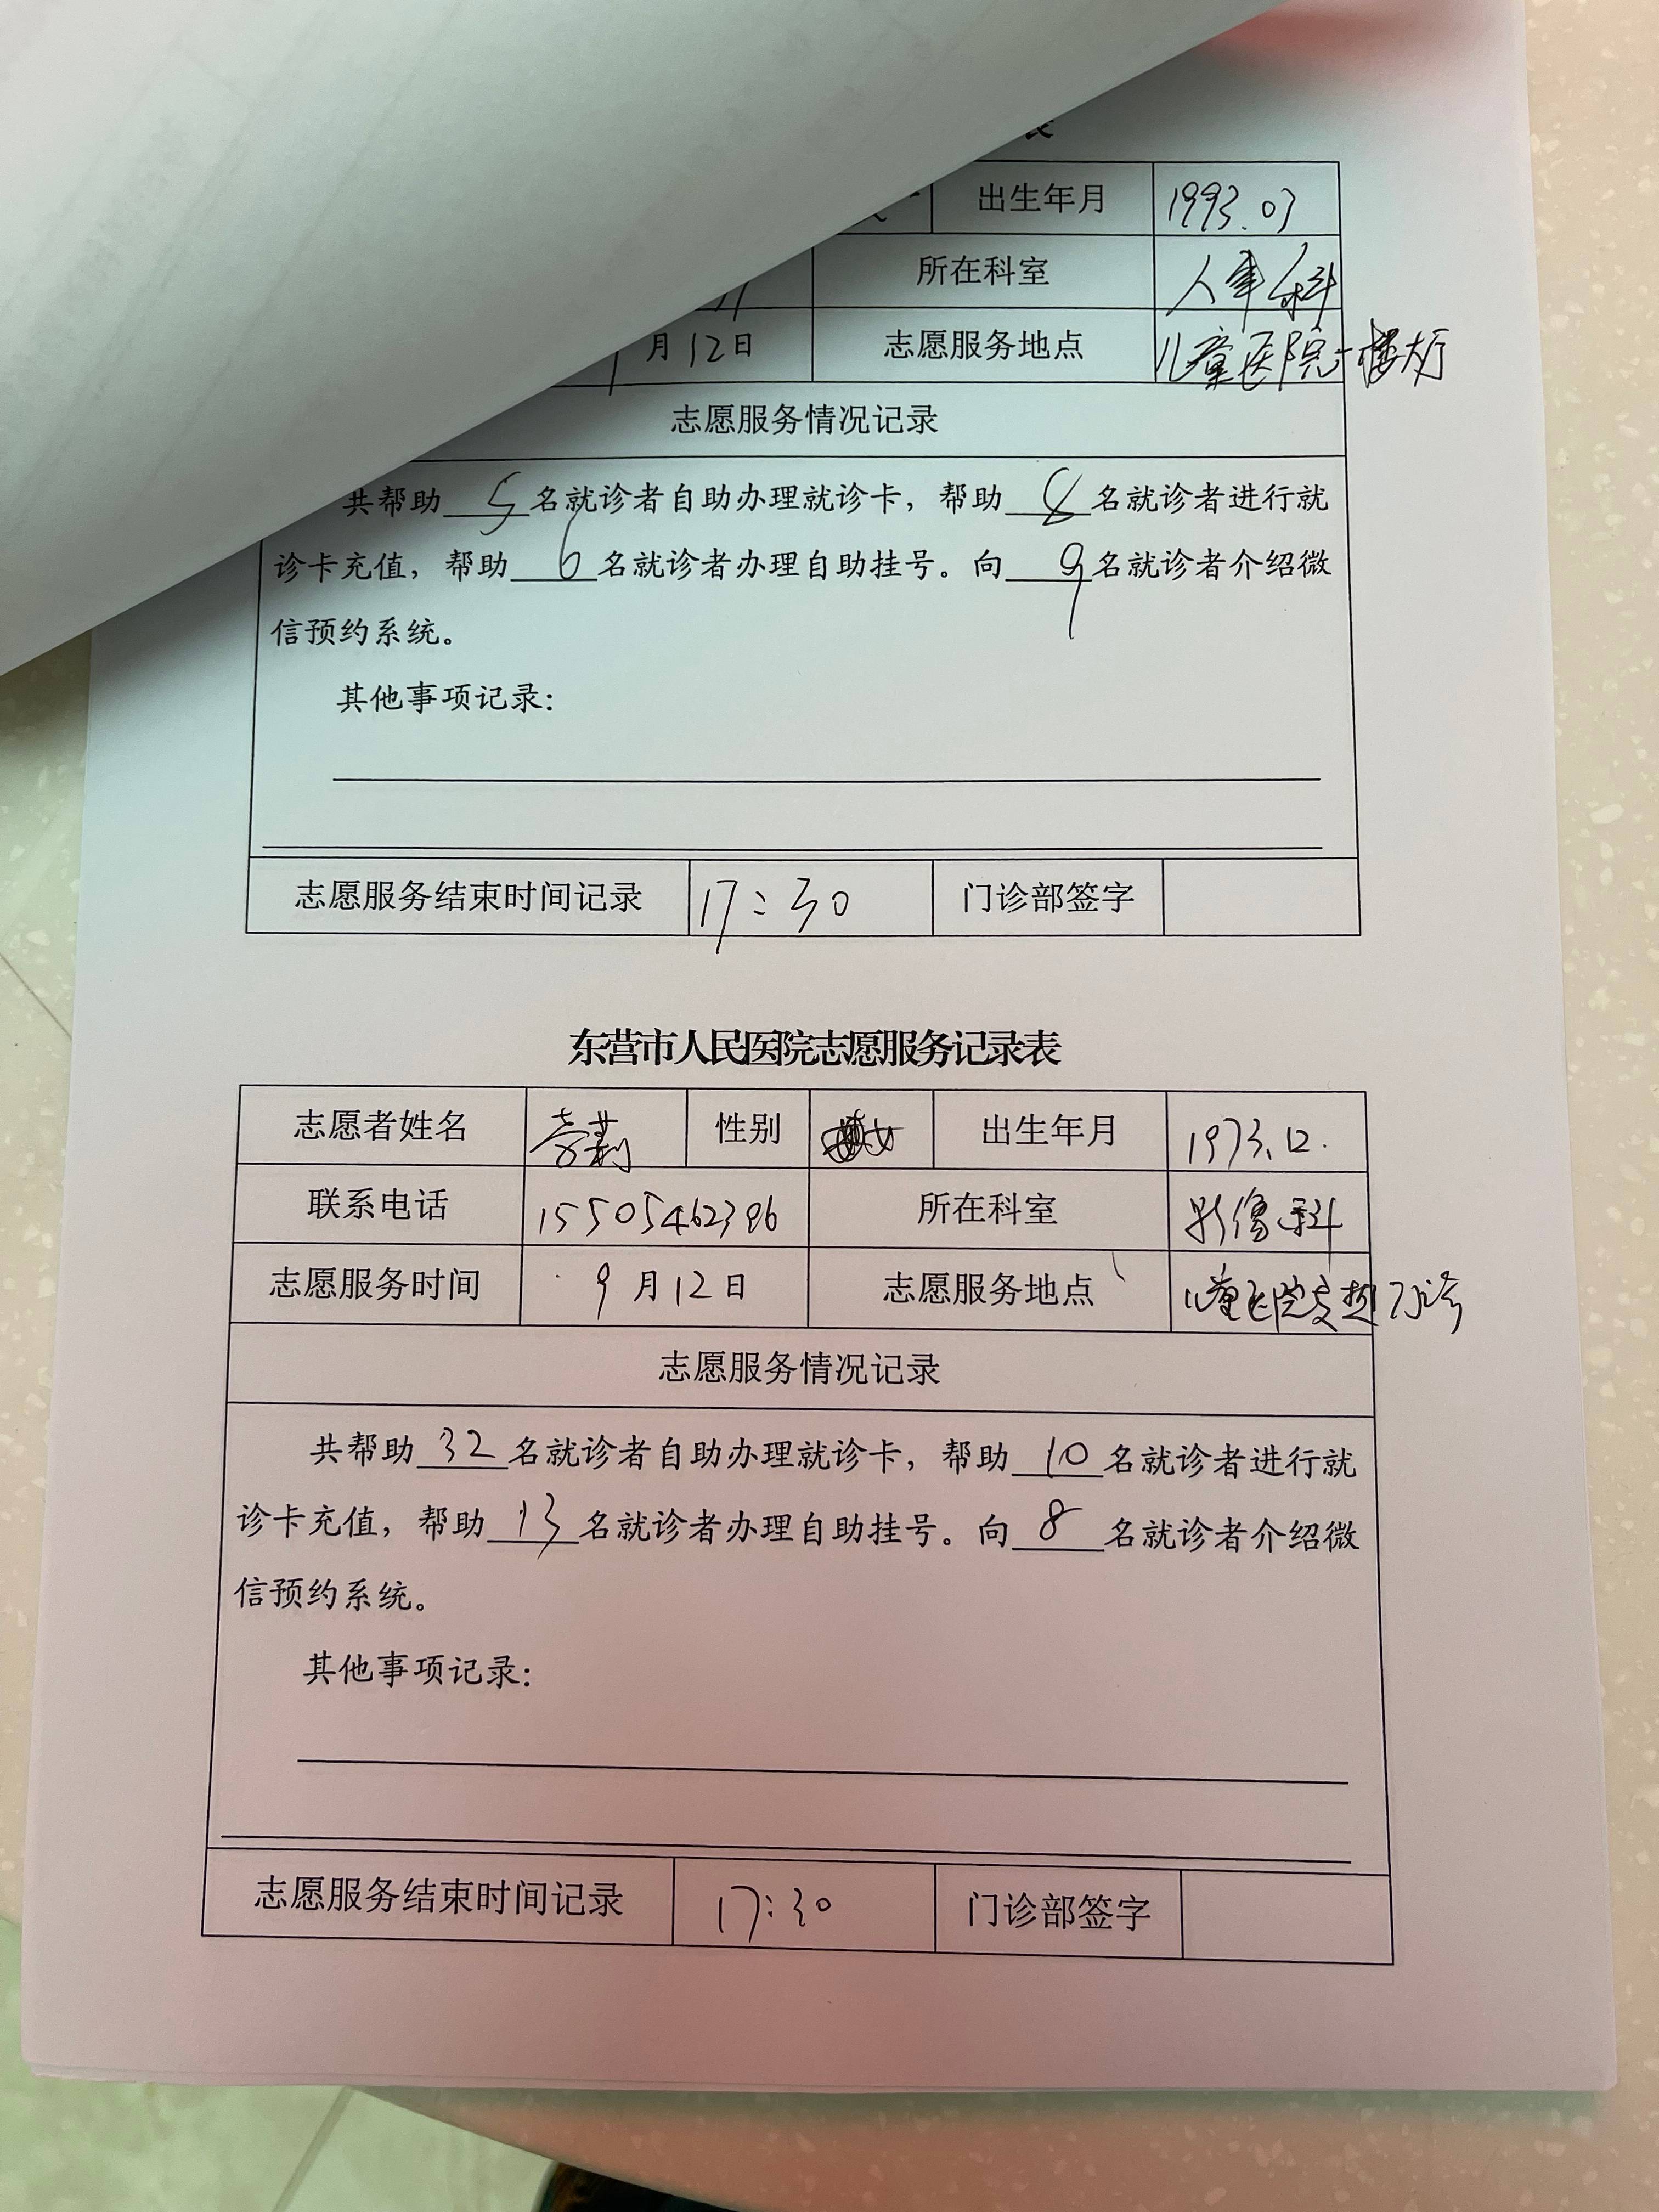 表
出生年月 1993.03
所在科室 人事科
月12日 志愿服务地点 儿童医院一楼大厅
志愿服务情况记录
共帮助 5 名就诊者自助办理就诊卡，帮助 8 名就诊者进行就
诊卡充值，帮助 6 名就诊者办理自助挂号。向 9 名就诊者介绍微
信预约系统。
其他事项记录：
志愿服务结束时间记录 17:30 门诊部签字
东营市人民医院志愿服务记录表
志愿者姓名 性别 女 出生年月 1973.12.
联系电话 15505462396 所在科室 影像科
志愿服务时间 9月12日 志愿服务地点 儿童医院发热门诊
志愿服务情况记录
共帮助 32 名就诊者自助办理就诊卡，帮助 10 名就诊者进行就
诊卡充值，帮助 13 名就诊者办理自助挂号。向 8 名就诊者介绍微
信预约系统。
其他事项记录：
志愿服务结束时间记录 17:30 门诊部签字